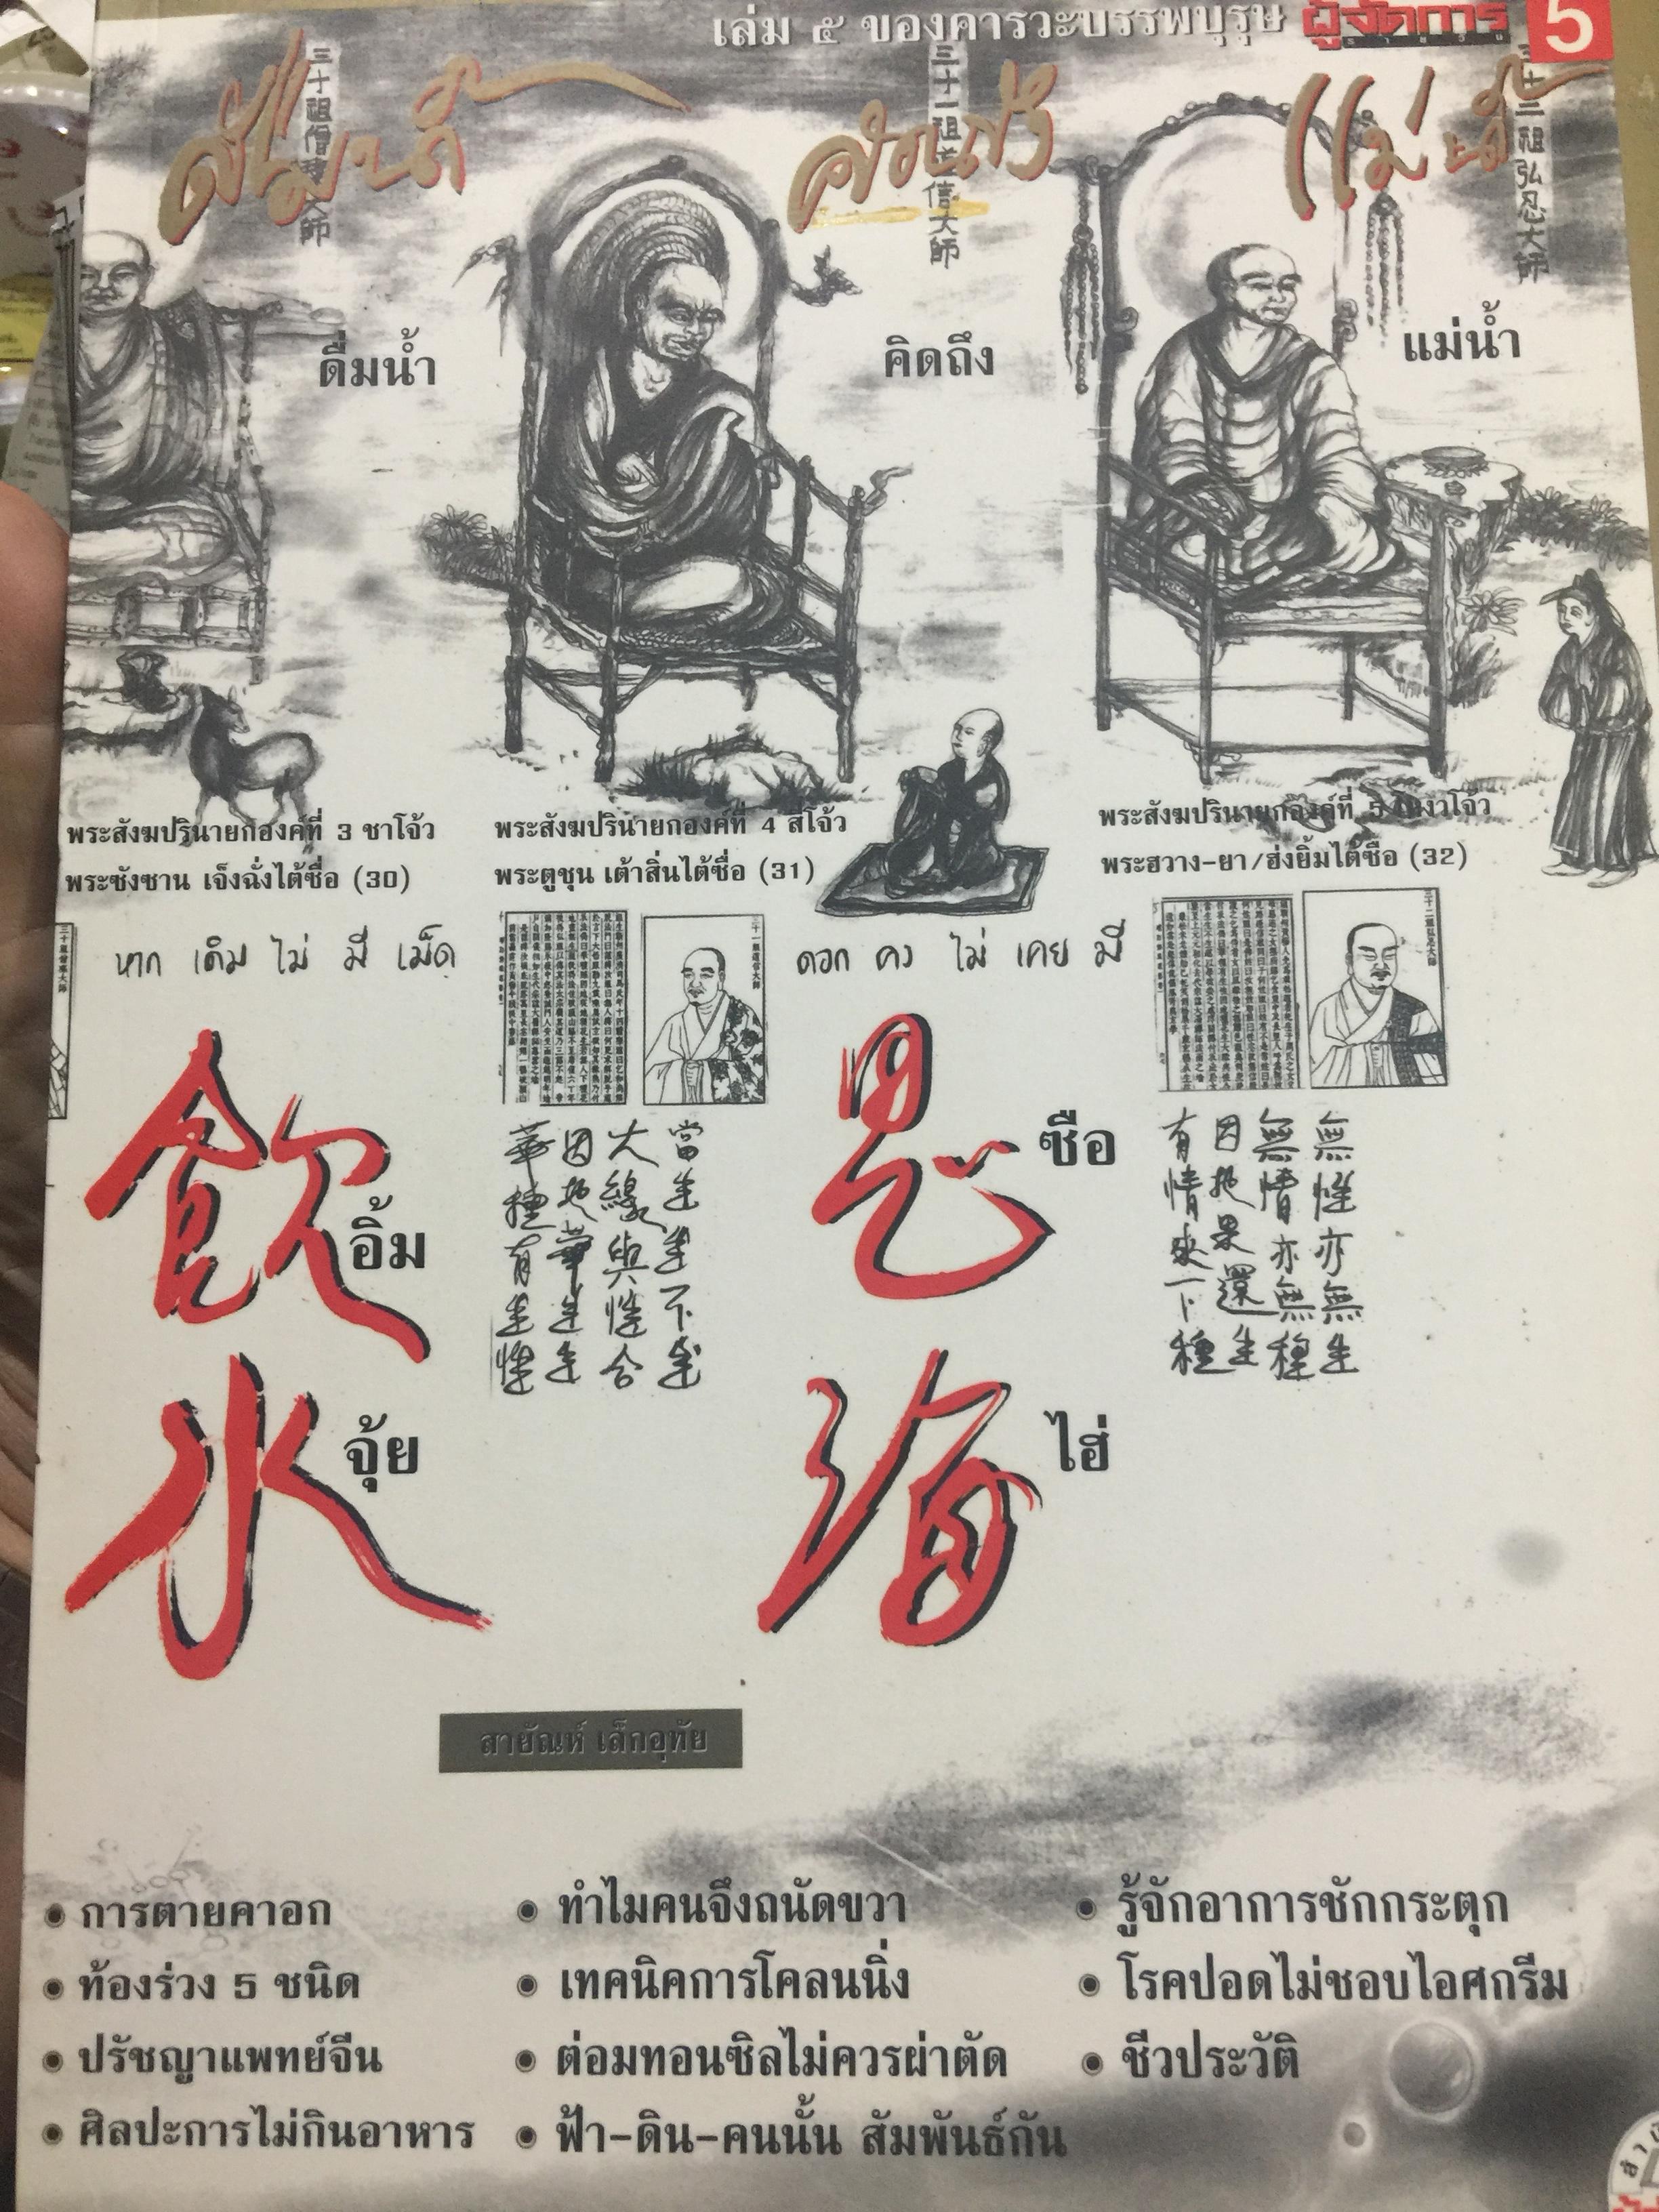 เล่ม ๕ ของคารวะบรรพบุรุษ ผู้จัดการ 5
รายวัน
三十祖僧璨大師
三十一祖道信大師
三十二祖弘忍大師
ดื่มน้ำ
คิดถึง
แม่น้ำ
ดื่มน้ำ
คิดถึง
แม่น้ำ
พระสังฆปรินายกองค์ที่ 3 ซาโจ้ว
พระซังซาน เจ็งฉั่งไต้ซื่อ (30)
พระสังฆปรินายกองค์ที่ 4 สี่โจ้ว
พระตูชุน เต้าสิ่นไต้ซื่อ (31)
พระสังฆปรินายกองค์ที่ 5 โหงวโจ้ว
พระฮวาง-ยา/ฮ่งยิ้มไต้ซื่อ (32)
หาก เดิม ไม่ มี เม็ด
ดอก คง ไม่ เคย มี
三十一祖道信大師
三十二祖弘忍大師
飲 อิ้ม
水 จุ้ย
華種有生性
因地華生生
大緣與性合
當生生不生
思 ซือ
海 ไฮ่
有情來下種
因地果還生
無情亦無種
無性亦無生
สายัณห์ เล็กอุทัย
• การตายคาอก
• ท้องร่วง 5 ชนิด
• ปรัชญาแพทย์จีน
• ศิลปะการไม่กินอาหาร
• ทำไมคนจึงถนัดขวา
• เทคนิคการโคลนนิ่ง
• ต่อมทอนซิลไม่ควรผ่าตัด
• ฟ้า-ดิน-คนนั้น สัมพันธ์กัน
• รู้จักอาการชักกระตุก
• โรคปอดไม่ชอบไอศกรีม
• ชีวประวัติ